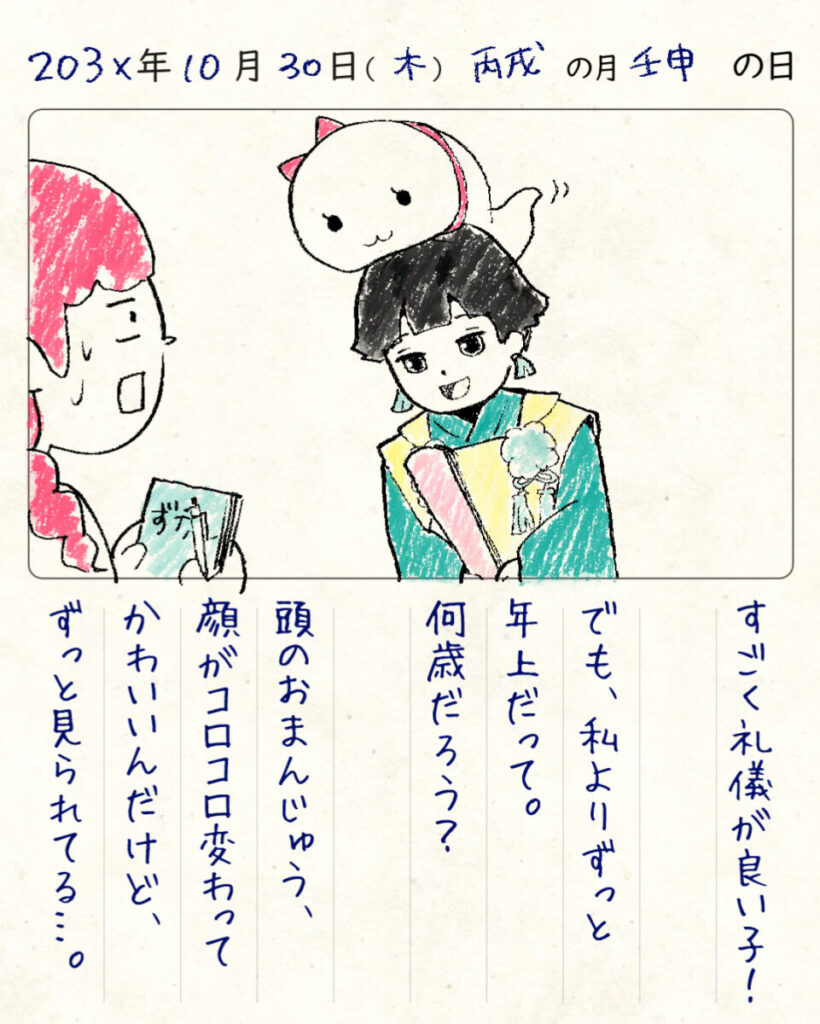 203x年10月30日(木) 丙戌の月壬申の日
ず
すごく礼儀が良い子!
でも、私よりずっと
年上だって。
何歳だろう?
頭のおまんじゅう、
顔がコロコロ変わって
かわいいんだけど、
ずっと見られてる…。